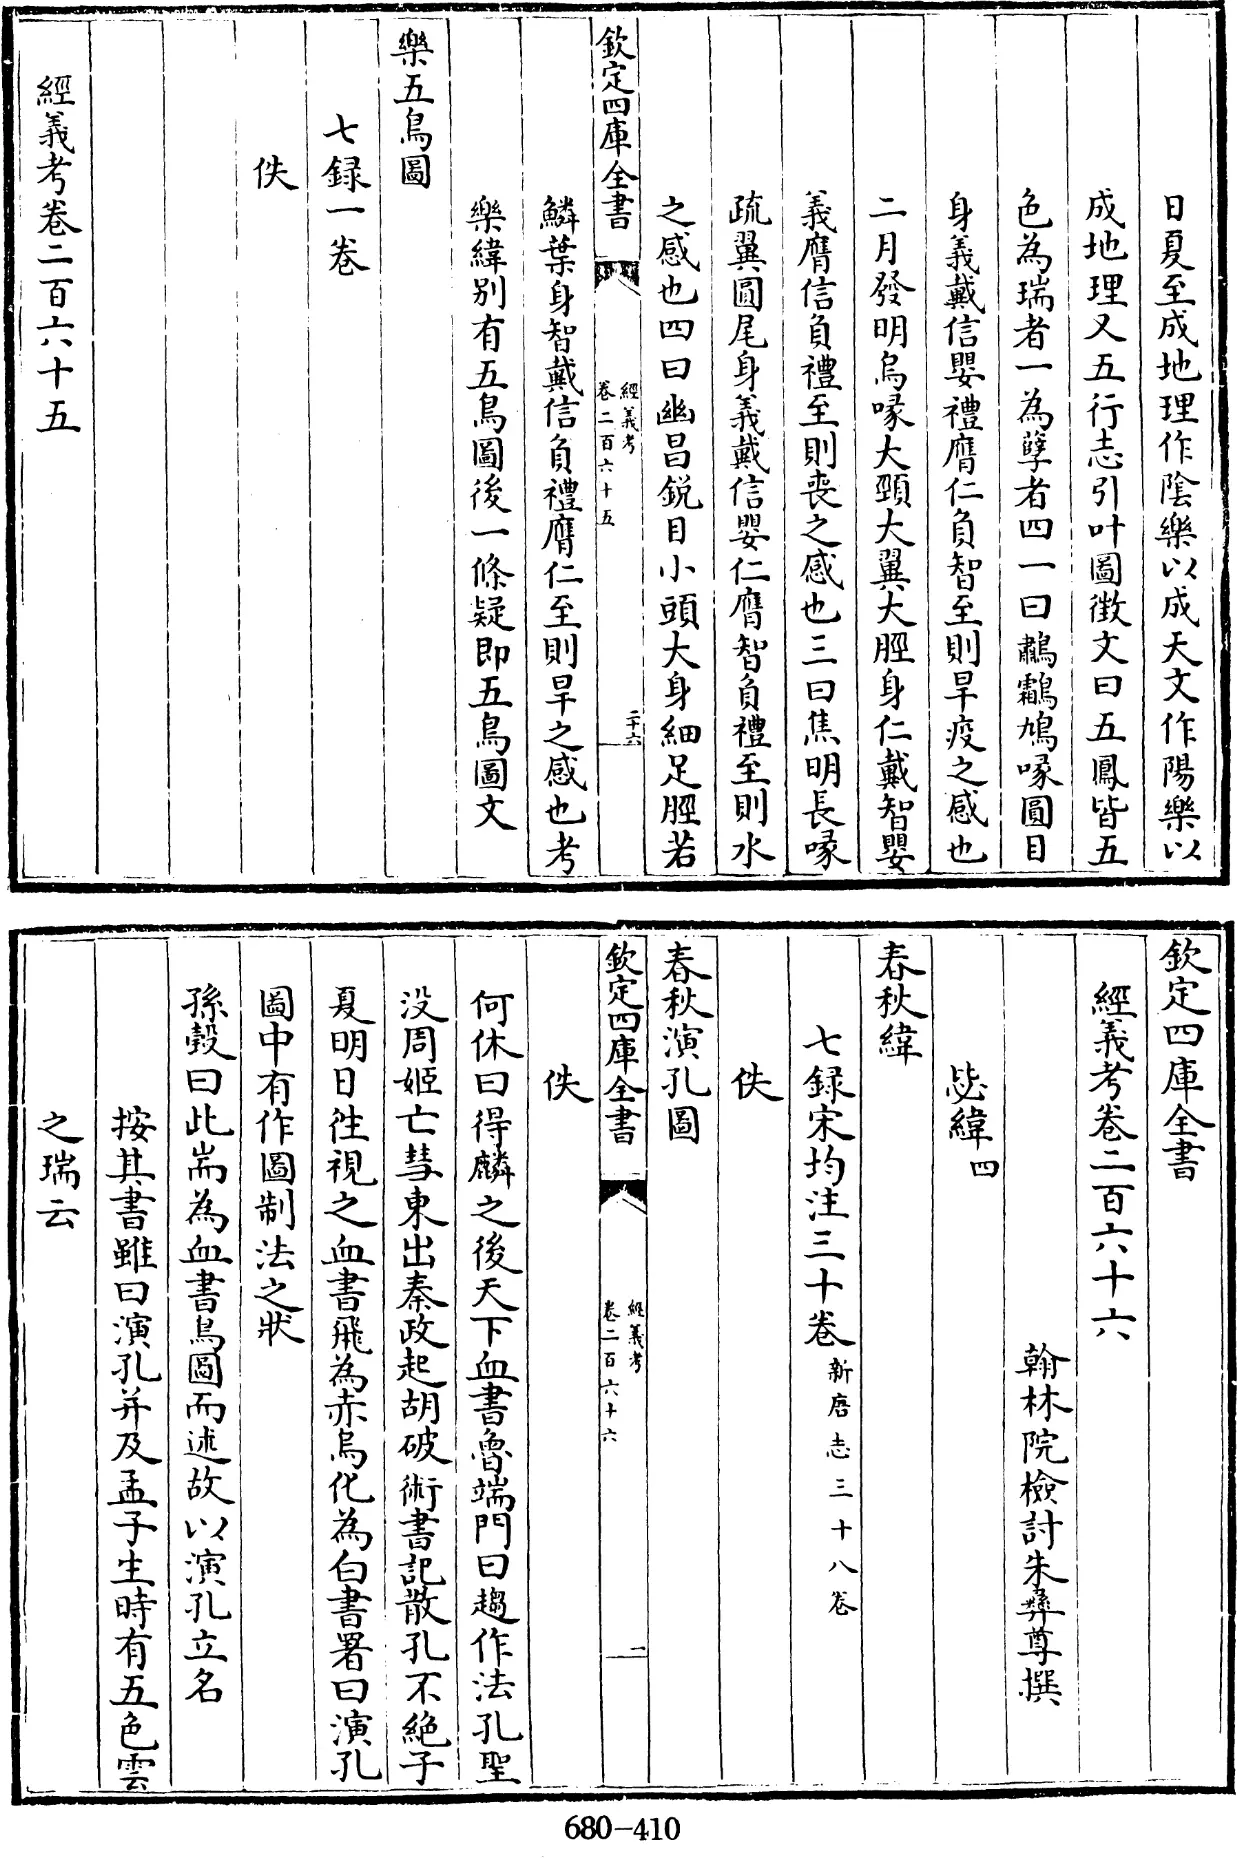 日夏至成地理作隂樂以成天文作陽樂以
成地理又五行志引叶圖徴文曰五鳳皆五
色為瑞者一為孽者四一曰鷫鸘鳩喙圓目
身義戴信嬰禮膺仁負智至則旱疫之感也
二月發明烏喙大頸大翼大脛身仁戴智嬰
義膺信負禮至則喪之感也三曰焦明長喙
疏翼圓尾身義戴信嬰仁膺智負禮至則水
之感也四曰幽昌銳目小頭大身細足脛若
欽定四庫全書
經義考
卷二百六十五
二十六
鱗葉身智戴信負禮膺仁至則旱之感也考
樂緯别有五鳥圖後一條疑即五鳥圖文
樂五鳥圖
七録一卷
佚
經義考卷二百六十五
欽定四庫全書
經義考卷二百六十六
翰林院檢討朱彝尊撰
毖緯四
春秋緯
七録宋均注三十卷新唐志三十八卷
佚
春秋演孔圖
欽定四庫全書
經義考
卷二百六十六
一
佚
何休曰得麟之後天下血書魯端門曰趨作法孔聖
没周姬亡彗東出秦政起胡破術書記散孔不絶子
夏明日往視之血書飛為赤烏化為白書署曰演孔
圖中有作圖制法之狀
孫瑴曰此耑為血書鳥圖而述故以演孔立名
按其書雖曰演孔并及孟子生時有五色雲
之瑞云
680-410